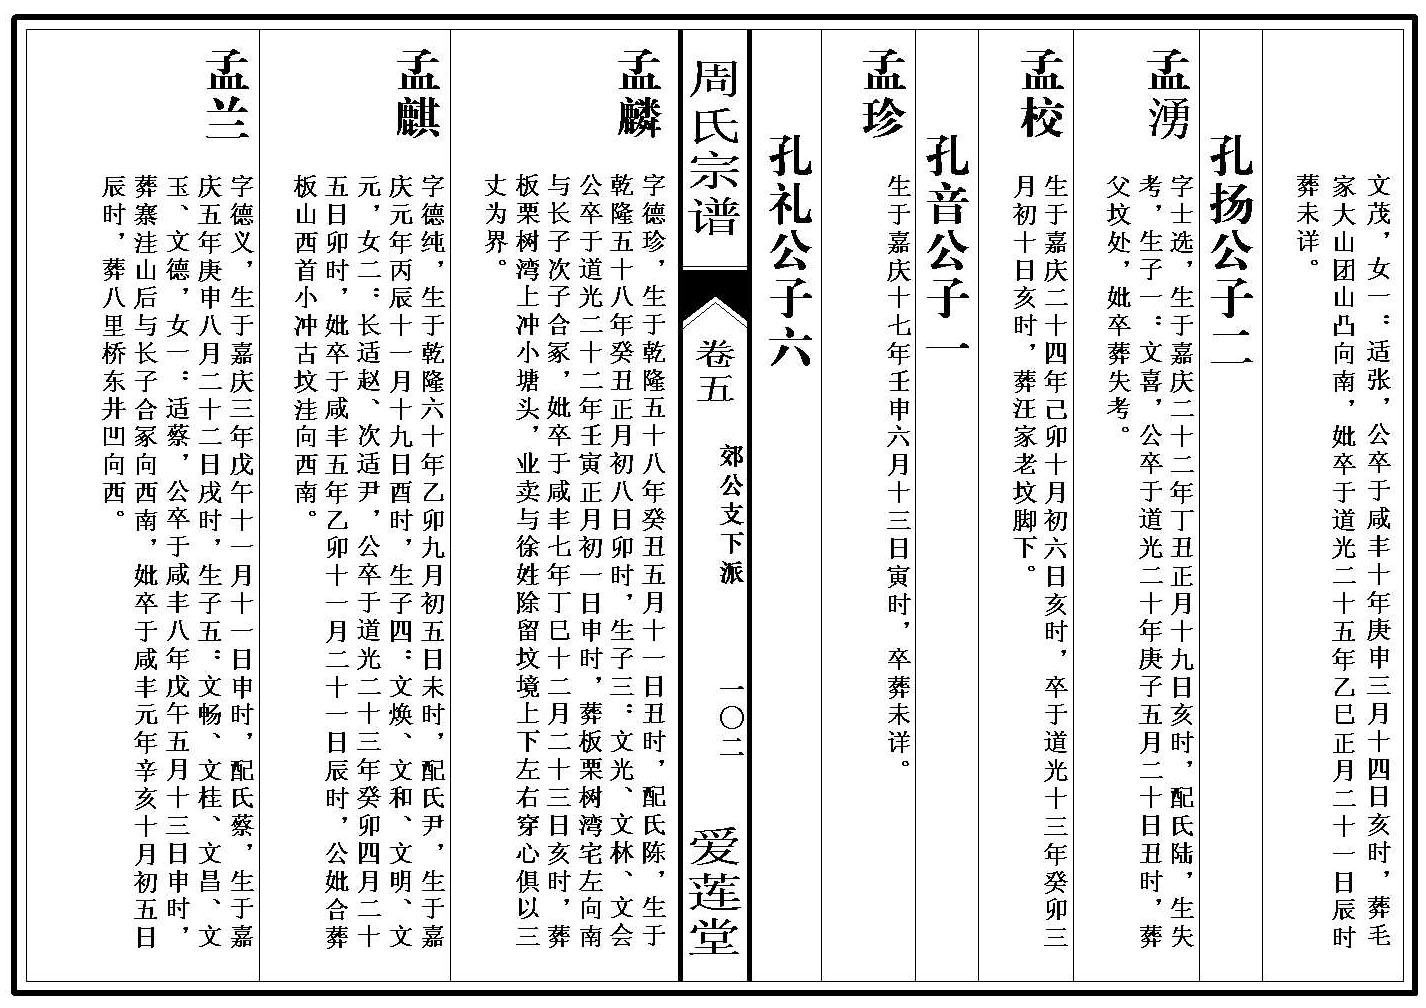 文茂，女一：适张，公卒于咸丰十年庚申三月十四日亥时，葬毛
家大山团山凸向南，妣卒于道光二十五年乙巳正月二十一日辰时
葬未详。
孔扬公子二
孟湧
字士选，生于嘉庆二十二年丁丑正月十九日亥时，配氏陆，生失
考，生子一：文喜，公卒于道光二十年庚子五月二十日丑时，葬
父坟处，妣卒葬失考。
孟校
生于嘉庆二十四年己卯十月初六日亥时，卒于道光十三年癸卯三
月初十日亥时，葬汪家老坟脚下。
孔音公子一
孟珍
生于嘉庆十七年壬申六月十三日寅时，卒葬未详。
孔礼公子六
周氏宗谱
卷五
郊公支下派
一〇二
爱莲堂
孟麟
字德珍，生于乾隆五十八年癸丑五月十一日丑时，配氏陈，生于
乾隆五十八年癸丑正月初八日卯时，生子三：文光、文林、文会
公卒于道光二十二年壬寅正月初一日申时，葬板栗树湾宅左向南
与长子次子合冢，妣卒于咸丰七年丁巳十二月二十三日亥时，葬
板栗树湾上冲小塘头，业卖与徐姓除留坟境上下左右穿心俱以三
丈为界。
孟麒
字德纯，生于乾隆六十年乙卯九月初五日未时，配氏尹，生于嘉
庆元年丙辰十一月十九日酉时，生子四：文焕、文和、文明、文
元，女二：长适赵、次适尹，公卒于道光二十三年癸卯四月二十
五日卯时，妣卒于咸丰五年乙卯十一月二十一日辰时，公妣合葬
板山西首小冲古坟洼向西南。
孟兰
字德义，生于嘉庆三年戊午十一月十一日申时，配氏蔡，生于嘉
庆五年庚申八月二十二日戌时，生子五：文畅、文桂、文昌、文
玉、文德，女一：适蔡，公卒于咸丰八年戊午五月十三日申时，
葬寨洼山后与长子合冢向西南，妣卒于咸丰元年辛亥十月初五日
辰时，葬八里桥东井凹向西。